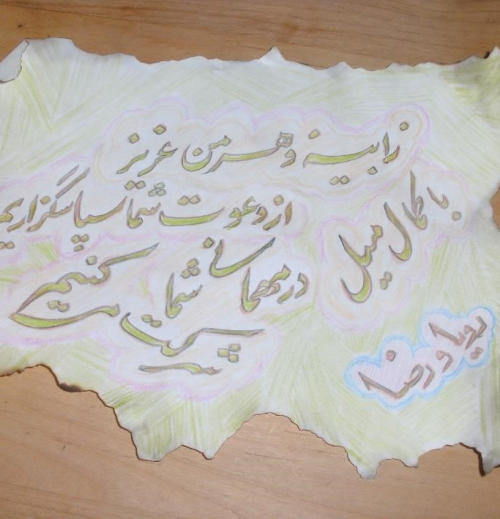 زابینه و هرمن عزیز
از دعوت شما سپاسگزاریم
با کمال میل
در مهمانی شما
شرکت می کنیم
رویا و رضا